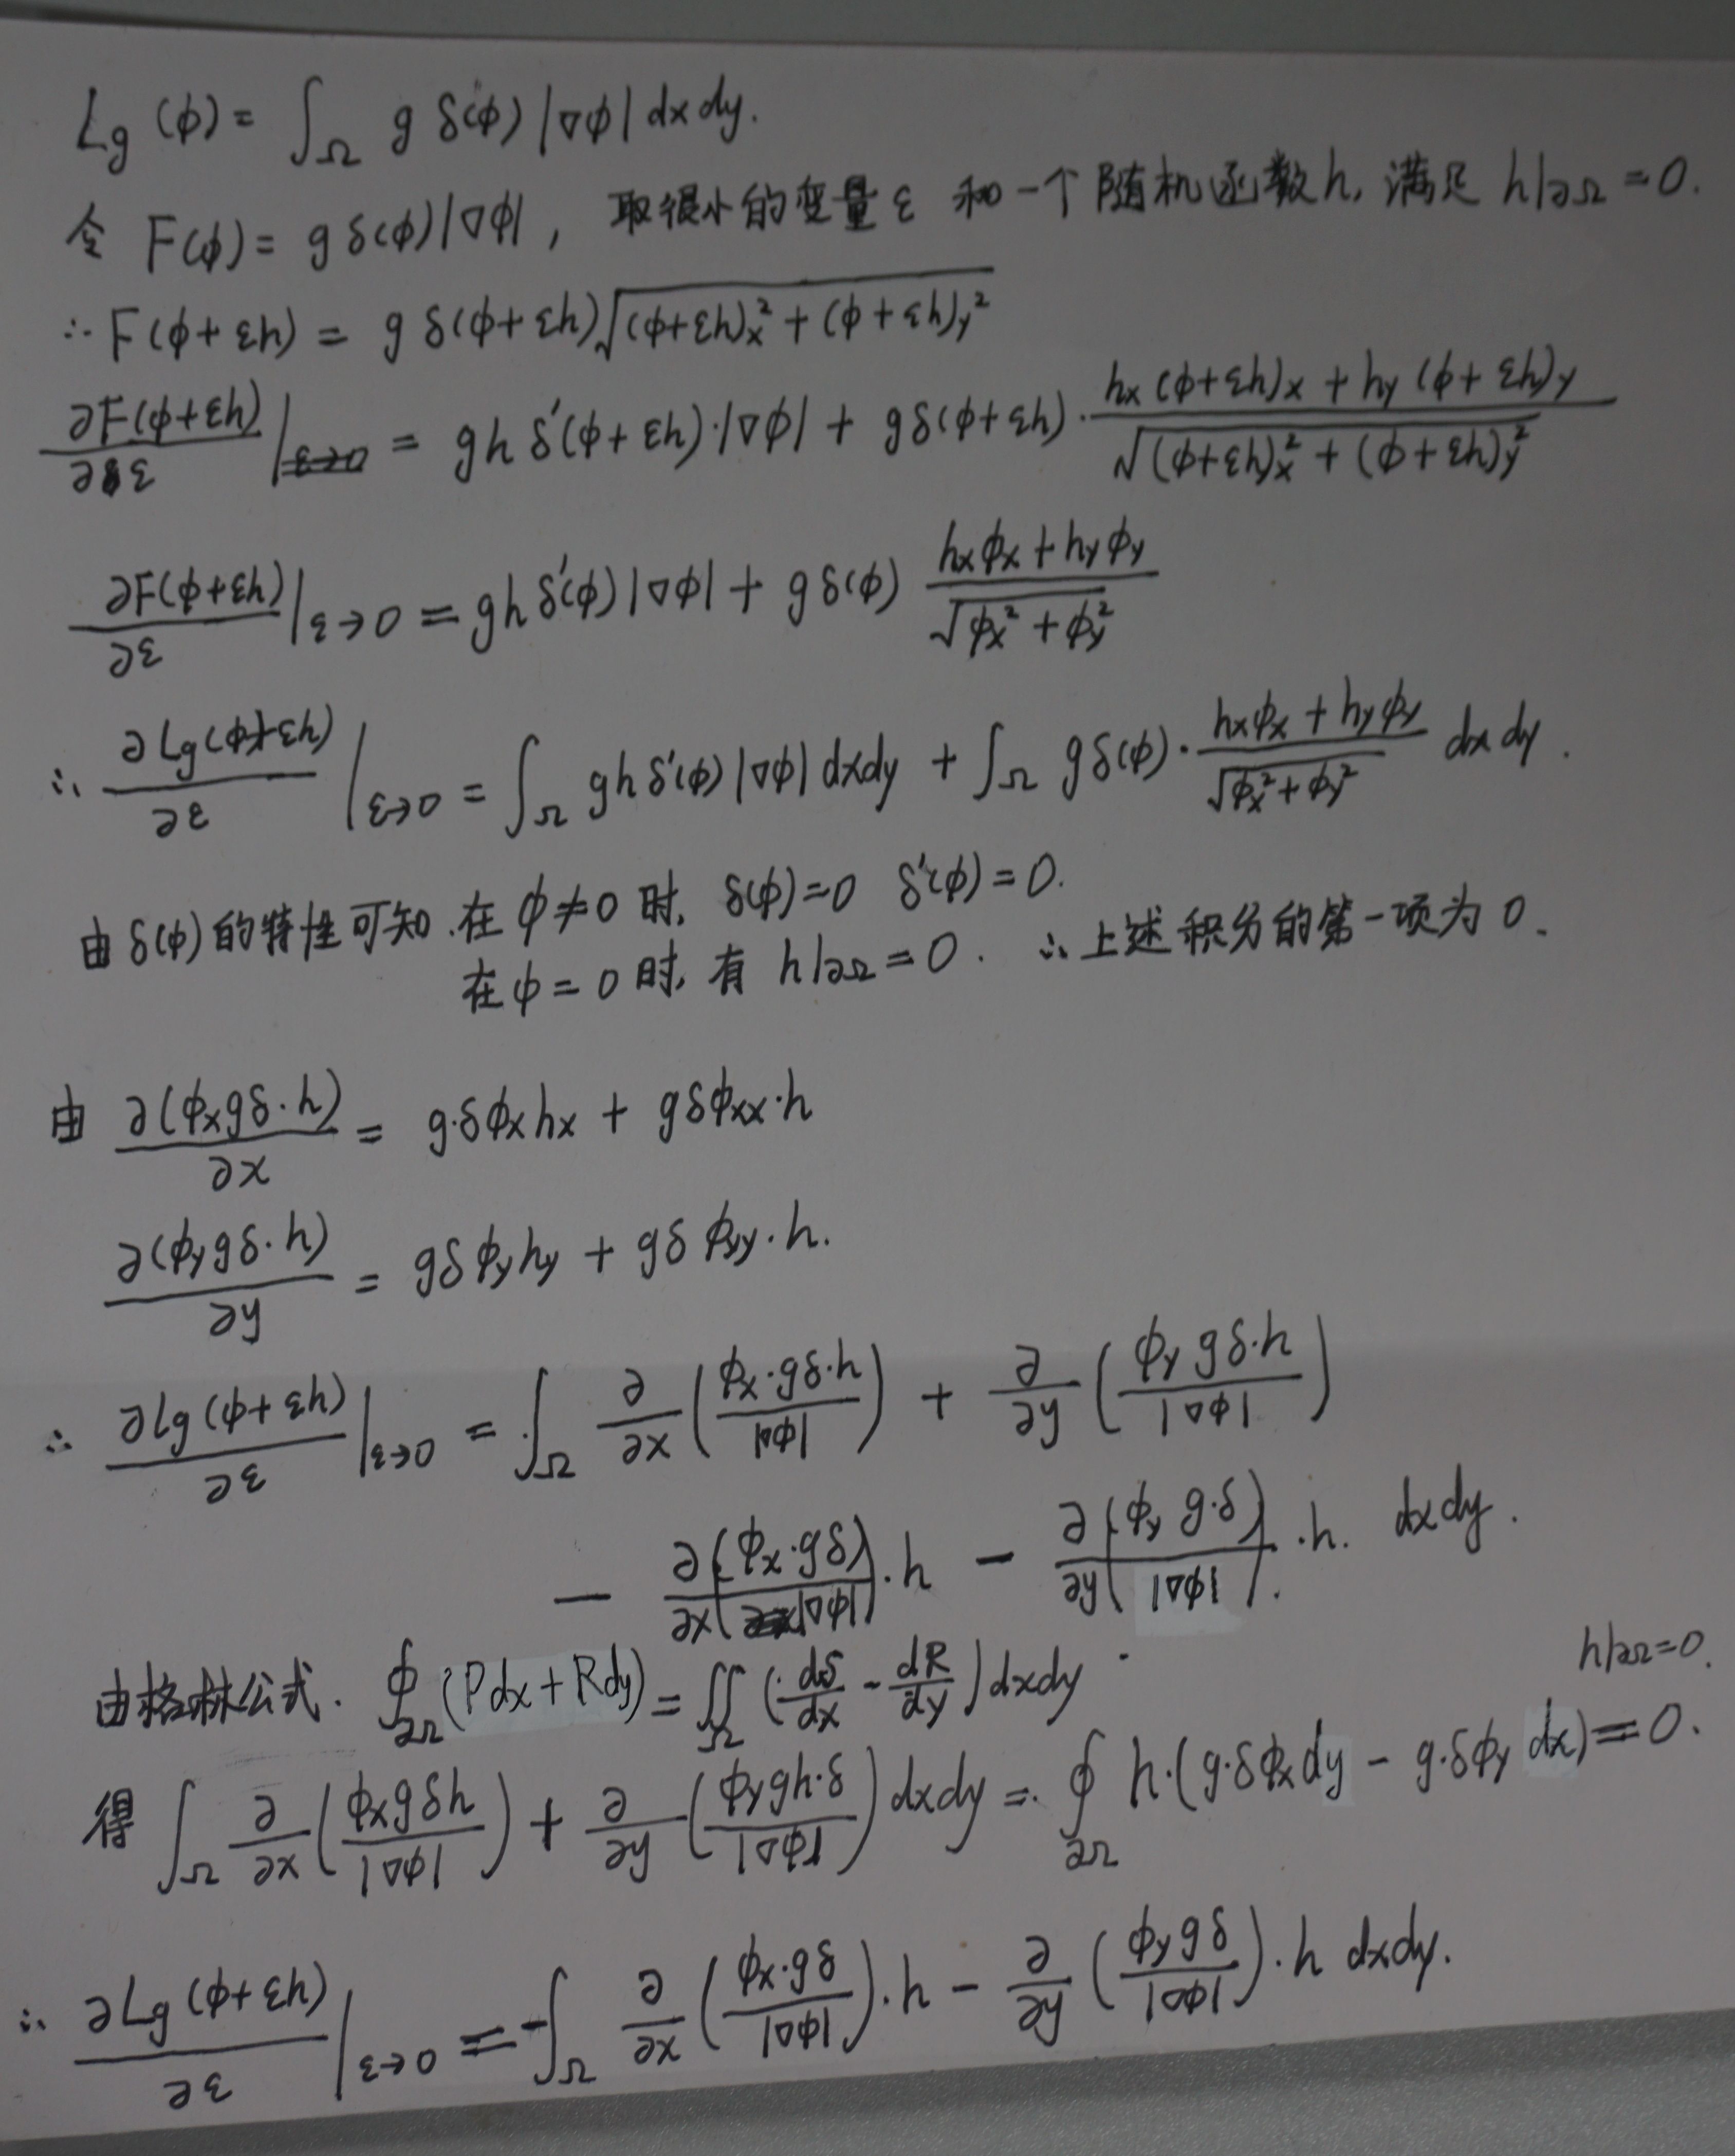 Lg (ϕ) = ∫_Ω g δ(ϕ) |∇ϕ| dx dy.
令 F(ϕ) = g δ(ϕ)|∇ϕ| , 取很小的变量 ε 和一个随机函数 h, 满足 h|∂Ω = 0.
∴ F(ϕ+εh) = g δ(ϕ+εh) √((ϕ+εh)x² + (ϕ+εh)y²)
∂F(ϕ+εh)/∂ε | = gh δ'(ϕ+εh)·|∇ϕ| + gδ(ϕ+εh) · (hx (ϕ+εh)x + hy (ϕ+εh)y)/√((ϕ+εh)x² + (ϕ+εh)y²)
∂F(ϕ+εh)/∂ε |ε→0 = gh δ'(ϕ) |∇ϕ| + g δ(ϕ) (hxϕx + hyϕy)/√(ϕx² + ϕy²)
∴ ∂Lg(ϕ+εh)/∂ε |ε→0 = ∫_Ω gh δ'(ϕ) |∇ϕ| dxdy + ∫_Ω gδ(ϕ) · (hxϕx + hyϕy)/√(ϕx² + ϕy²) dx dy .
由 δ(ϕ) 的特性可知. 在 ϕ≠0 时, δ(ϕ)=0 δ'(ϕ)=0.
在 ϕ = 0 时, 有 h|∂Ω = 0 . ∴ 上述积分的第一项为 0.
由 ∂(ϕx gδ·h)/∂x = g·δϕx hx + gδϕxx·h
∂(ϕy gδ·h)/∂y = gδ ϕy hy + gδ ϕyy·h.
∴ ∂Lg (ϕ+εh)/∂ε |ε→0 = ∫_Ω ∂/∂x (ϕx·gδ·h/|∇ϕ|) + ∂/∂y (ϕy gδ·h/|∇ϕ|)
− ∂/∂x (ϕx·gδ/|∇ϕ|)·h − ∂/∂y (ϕy g·δ/|∇ϕ|)·h. dxdy .
由格林公式. ∮_∂Ω (Pdx + Rdy) = ∬_Ω (dδ/dx − dR/dy) dxdy
h|∂Ω=0.
得 ∫_Ω ∂/∂x (ϕx gδh/|∇ϕ|) + ∂/∂y (ϕy gh·δ/|∇ϕ|) dxdy = ∮_∂Ω h·(g·δϕx dy − g·δϕy dx) = 0.
∴ ∂Lg (ϕ+εh)/∂ε |ε→0 = −∫_Ω ∂/∂x (ϕx·gδ/|∇ϕ|)·h − ∂/∂y (ϕy gδ/|∇ϕ|)·h dxdy.